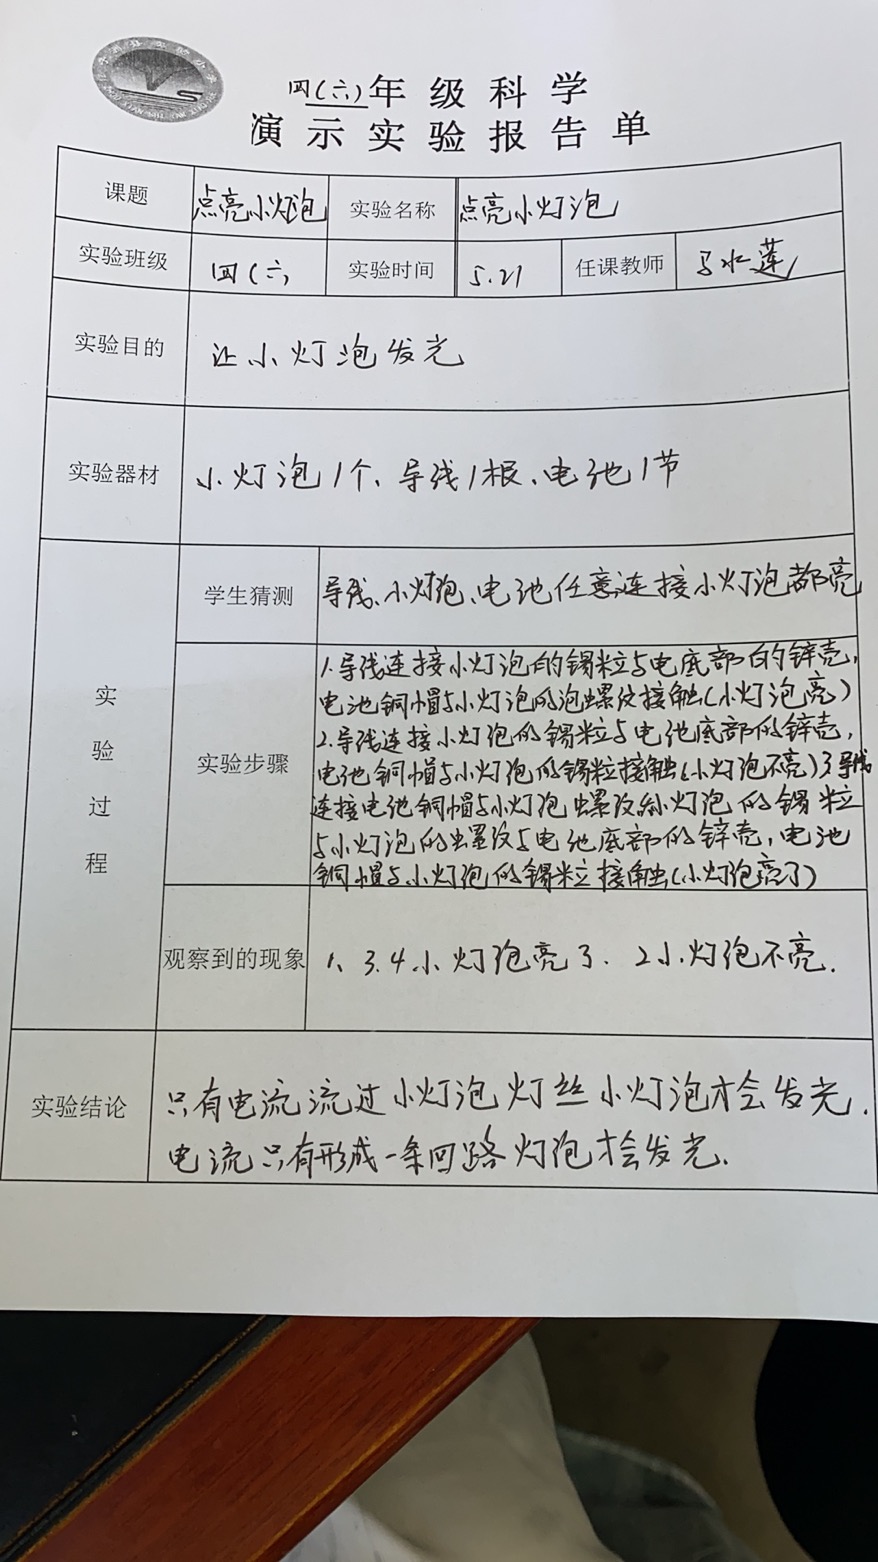 四(六)年级科学
演示实验报告单
课题 点亮小灯泡 实验名称 点亮小灯泡
实验班级 四(六) 实验时间 5.21 任课教师 马水莲
实验目的 让小灯泡发光
实验器材 小灯泡1个、导线1根、电池1节
实验过程
学生猜测 导线、小灯泡、电池任意连接小灯泡都亮
实验步骤
1.导线连接小灯泡的锡粒与电底部的锌壳,
电池铜帽与小灯泡的泡螺纹接触(小灯泡亮)
2.导线连接小灯泡的锡粒与电池底部的锌壳,
电池铜帽与小灯泡的锡粒接触(小灯泡不亮)3导线
连接电池铜帽与小灯泡螺纹 小灯泡的锡粒
与小灯泡的螺纹与电池底部的锌壳,电池
铜帽与小灯泡的锡粒接触(小灯泡亮了)
观察到的现象 1、3.4.小灯泡亮了. 2小灯泡不亮.
实验结论
只有电流流过小灯泡灯丝小灯泡才会发光.
电流只有形成一条回路灯泡才会发光.